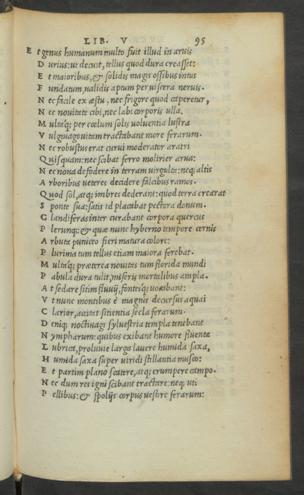 LIB. V 95
E t genus humanum multo fuit illud in aruis
D urius: ut decuit, tellus quod dura creasset:
E t maioribus, & solidis magis ossibus intus
F undatum, ualidis aptum per uiscera neruis.
N ec facile ex æstu, nec frigore quod caperetur,
N ec nouitate cibi, nec labi corporis ulla.
M ultaq; per cœlum solis uoluentia lustra
V ulguagouitam tractabant more ferarum.
N ec robustus erat curui moderator aratri
Q uisquam: nec scibat ferro molirier arua:
N ec noua defodere in terram uirgulta: neq; altis
A rboribus ueteres decidere falcibus ramos.
Q uod sol, atq; imbres dederant: quod terra crearat
S ponte sua: satis id placabat pectora donum.
G landiferas inter curabant corpora quercus
P lerunq; & quæ nunc hyberno tempore cernis
A rbuta puniceo fieri matura colore:
P lurima tum tellus etiam maiora ferebat.
M ultaq; præterea nouitas tum florida mundi
P abula dura tulit, miseris mortalibus ampla.
A t sedare sitim fluuij, fontesq; uocabant:
V t nunc montibus è magnis decursus aquai
C larior, accitat sitientia secla ferarum.
D eniq; noctiuagi syluestria templa tenebant
N ympharum: quibus exibant humore fluenta
L ubrica, proluuie larga lauere humida saxa,
H umida saxa super uiridi stillantia musco:
E t partim plano scatere, atq; erumpere campo.
N ec dum res igni scibant tractare: neq; uti
P ellibus: & spolijs corpus uestire ferarum: